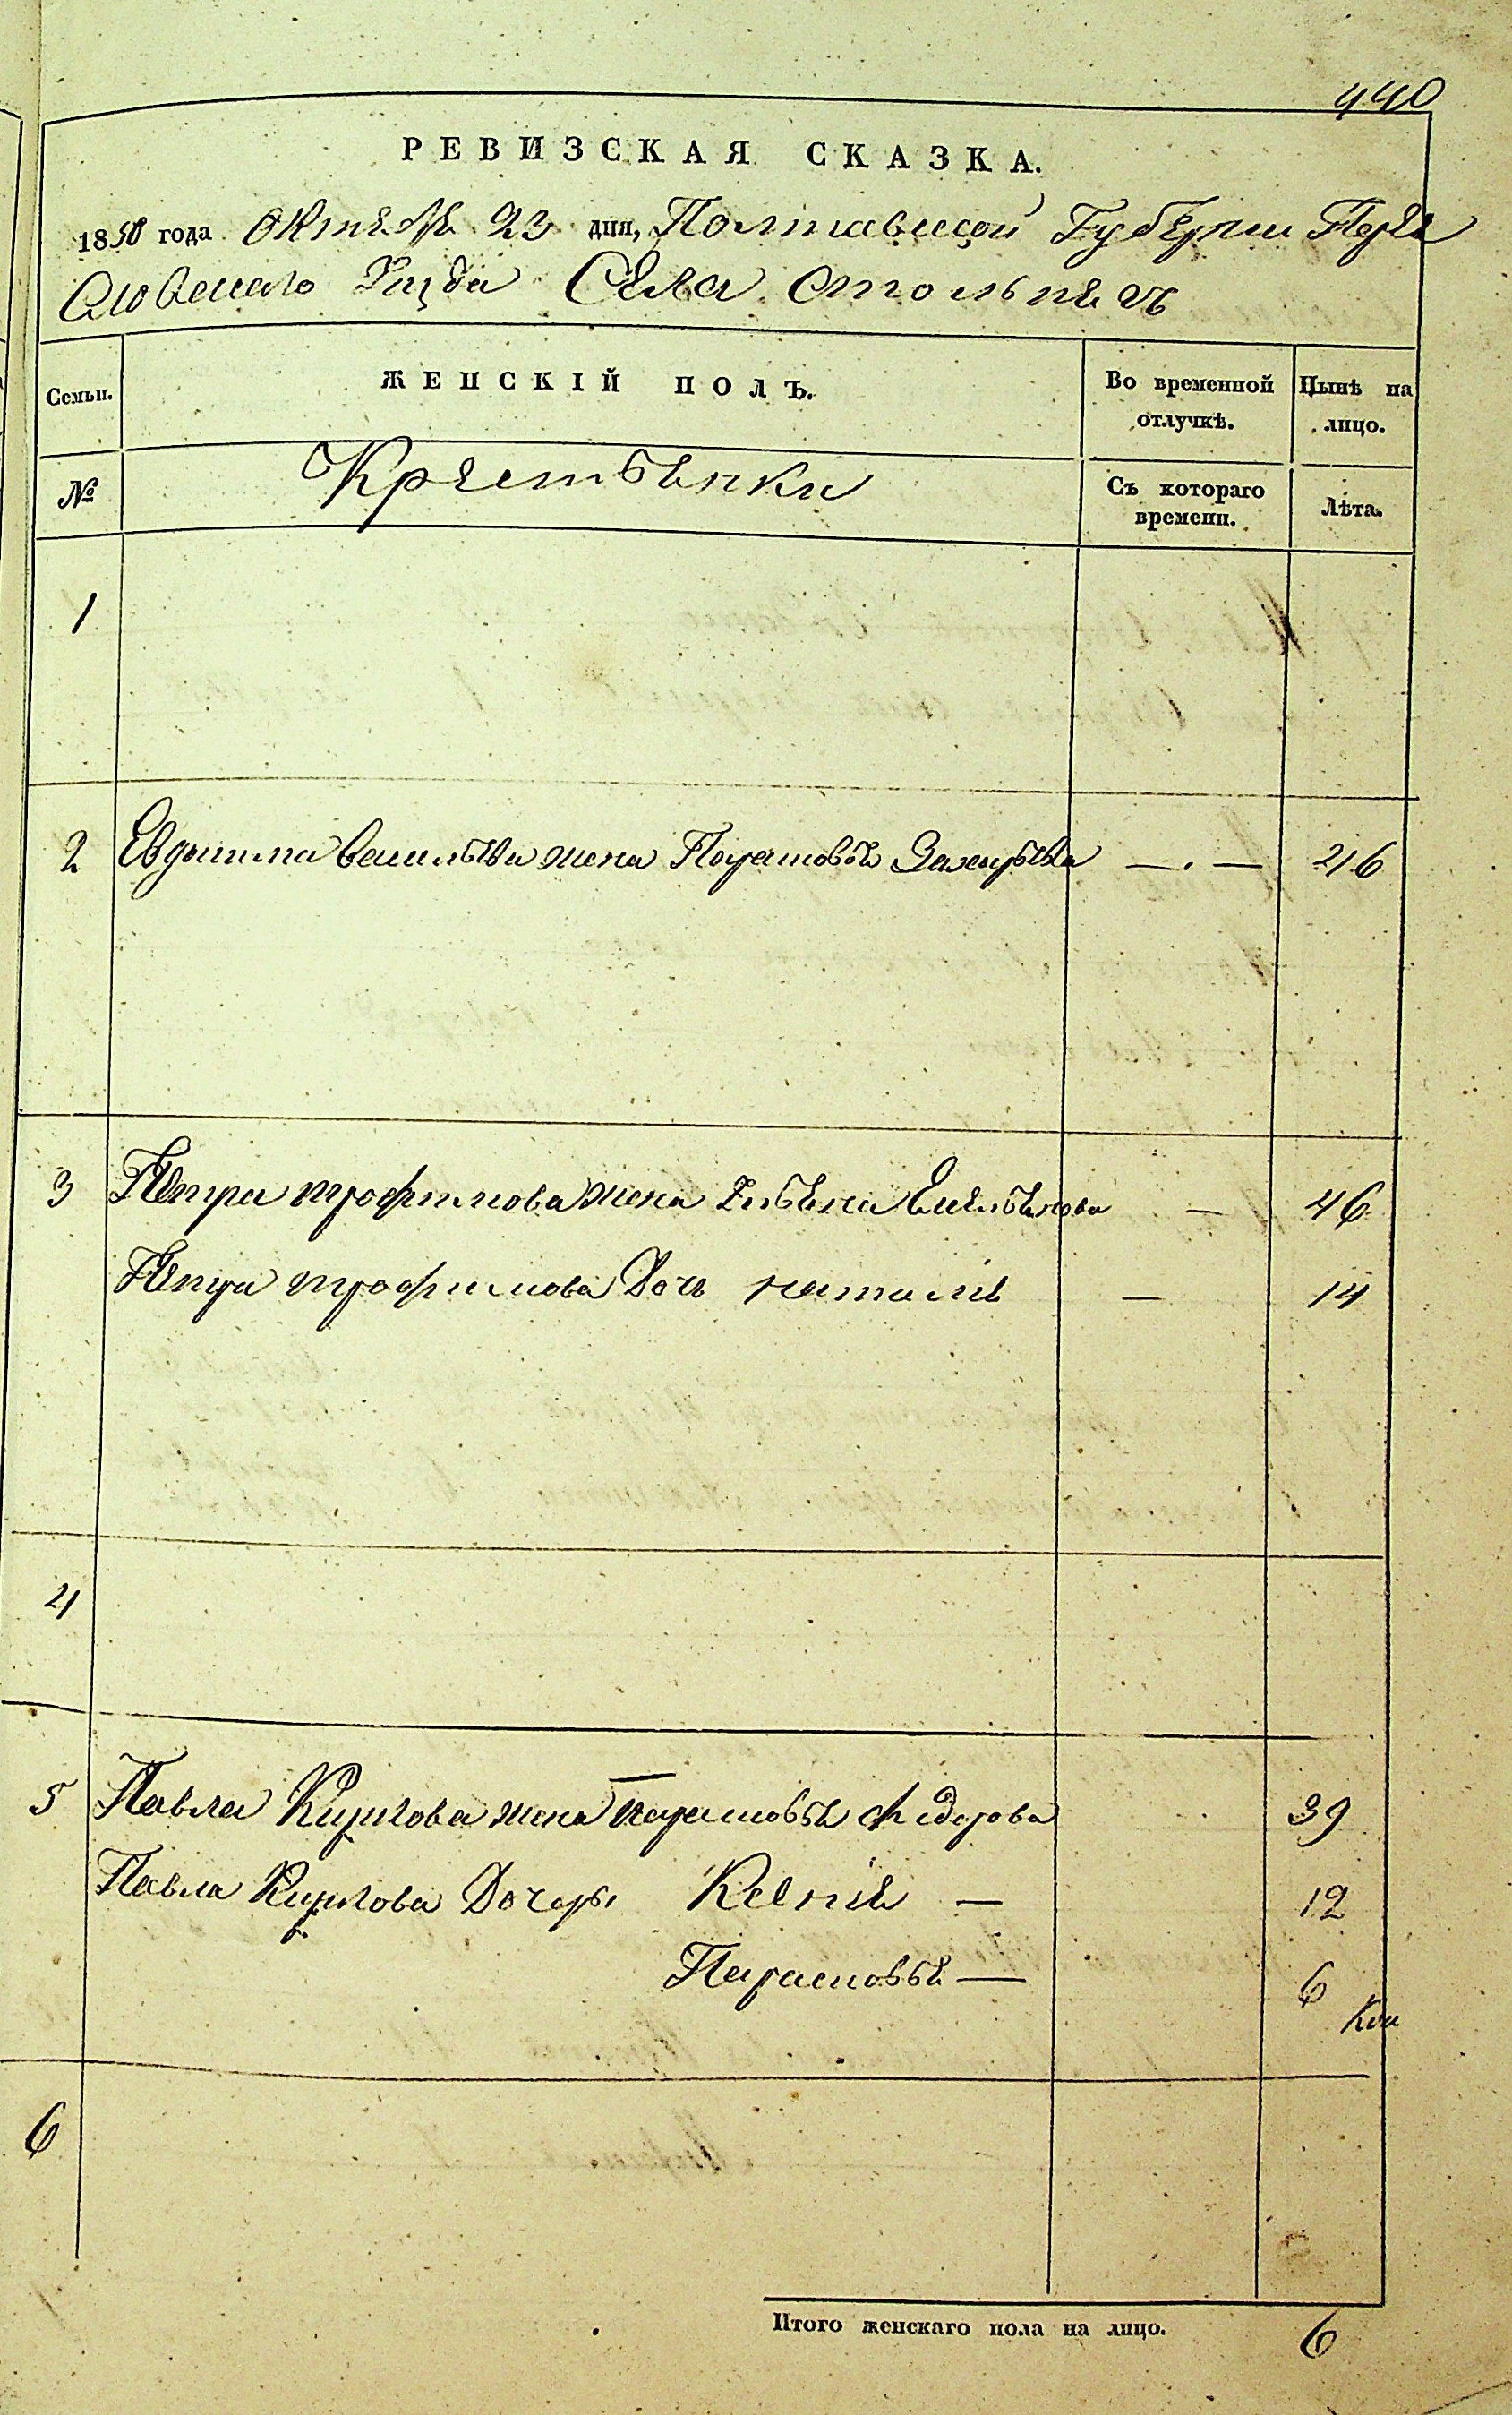 440
РЕВИЗСКАЯ СКАЗКА.
1850 года Октября 23 дня, Полтавской Губернии Перея
славскаго Уезда Села Стольняг
Семьи. ЖЕНСКІЙ ПОЛЪ. Во временной отлучкѣ. Нынѣ на лицо.
№ Крестьянки Съ котораго времени. Лѣта.
1
2 Евдокима Васильева жена Парасковья —.— 46
3 Петра Трофимова жена Ульяна Емельянова — 46
Петра Трофимова Дочь Наталия — 14
4
5 Павла Кирилова жена Парасковья Федорова 39
Павла Кирилова Дочери Ксения — 12
Парасковья — 6
6
Итого женскаго пола на лицо. 6